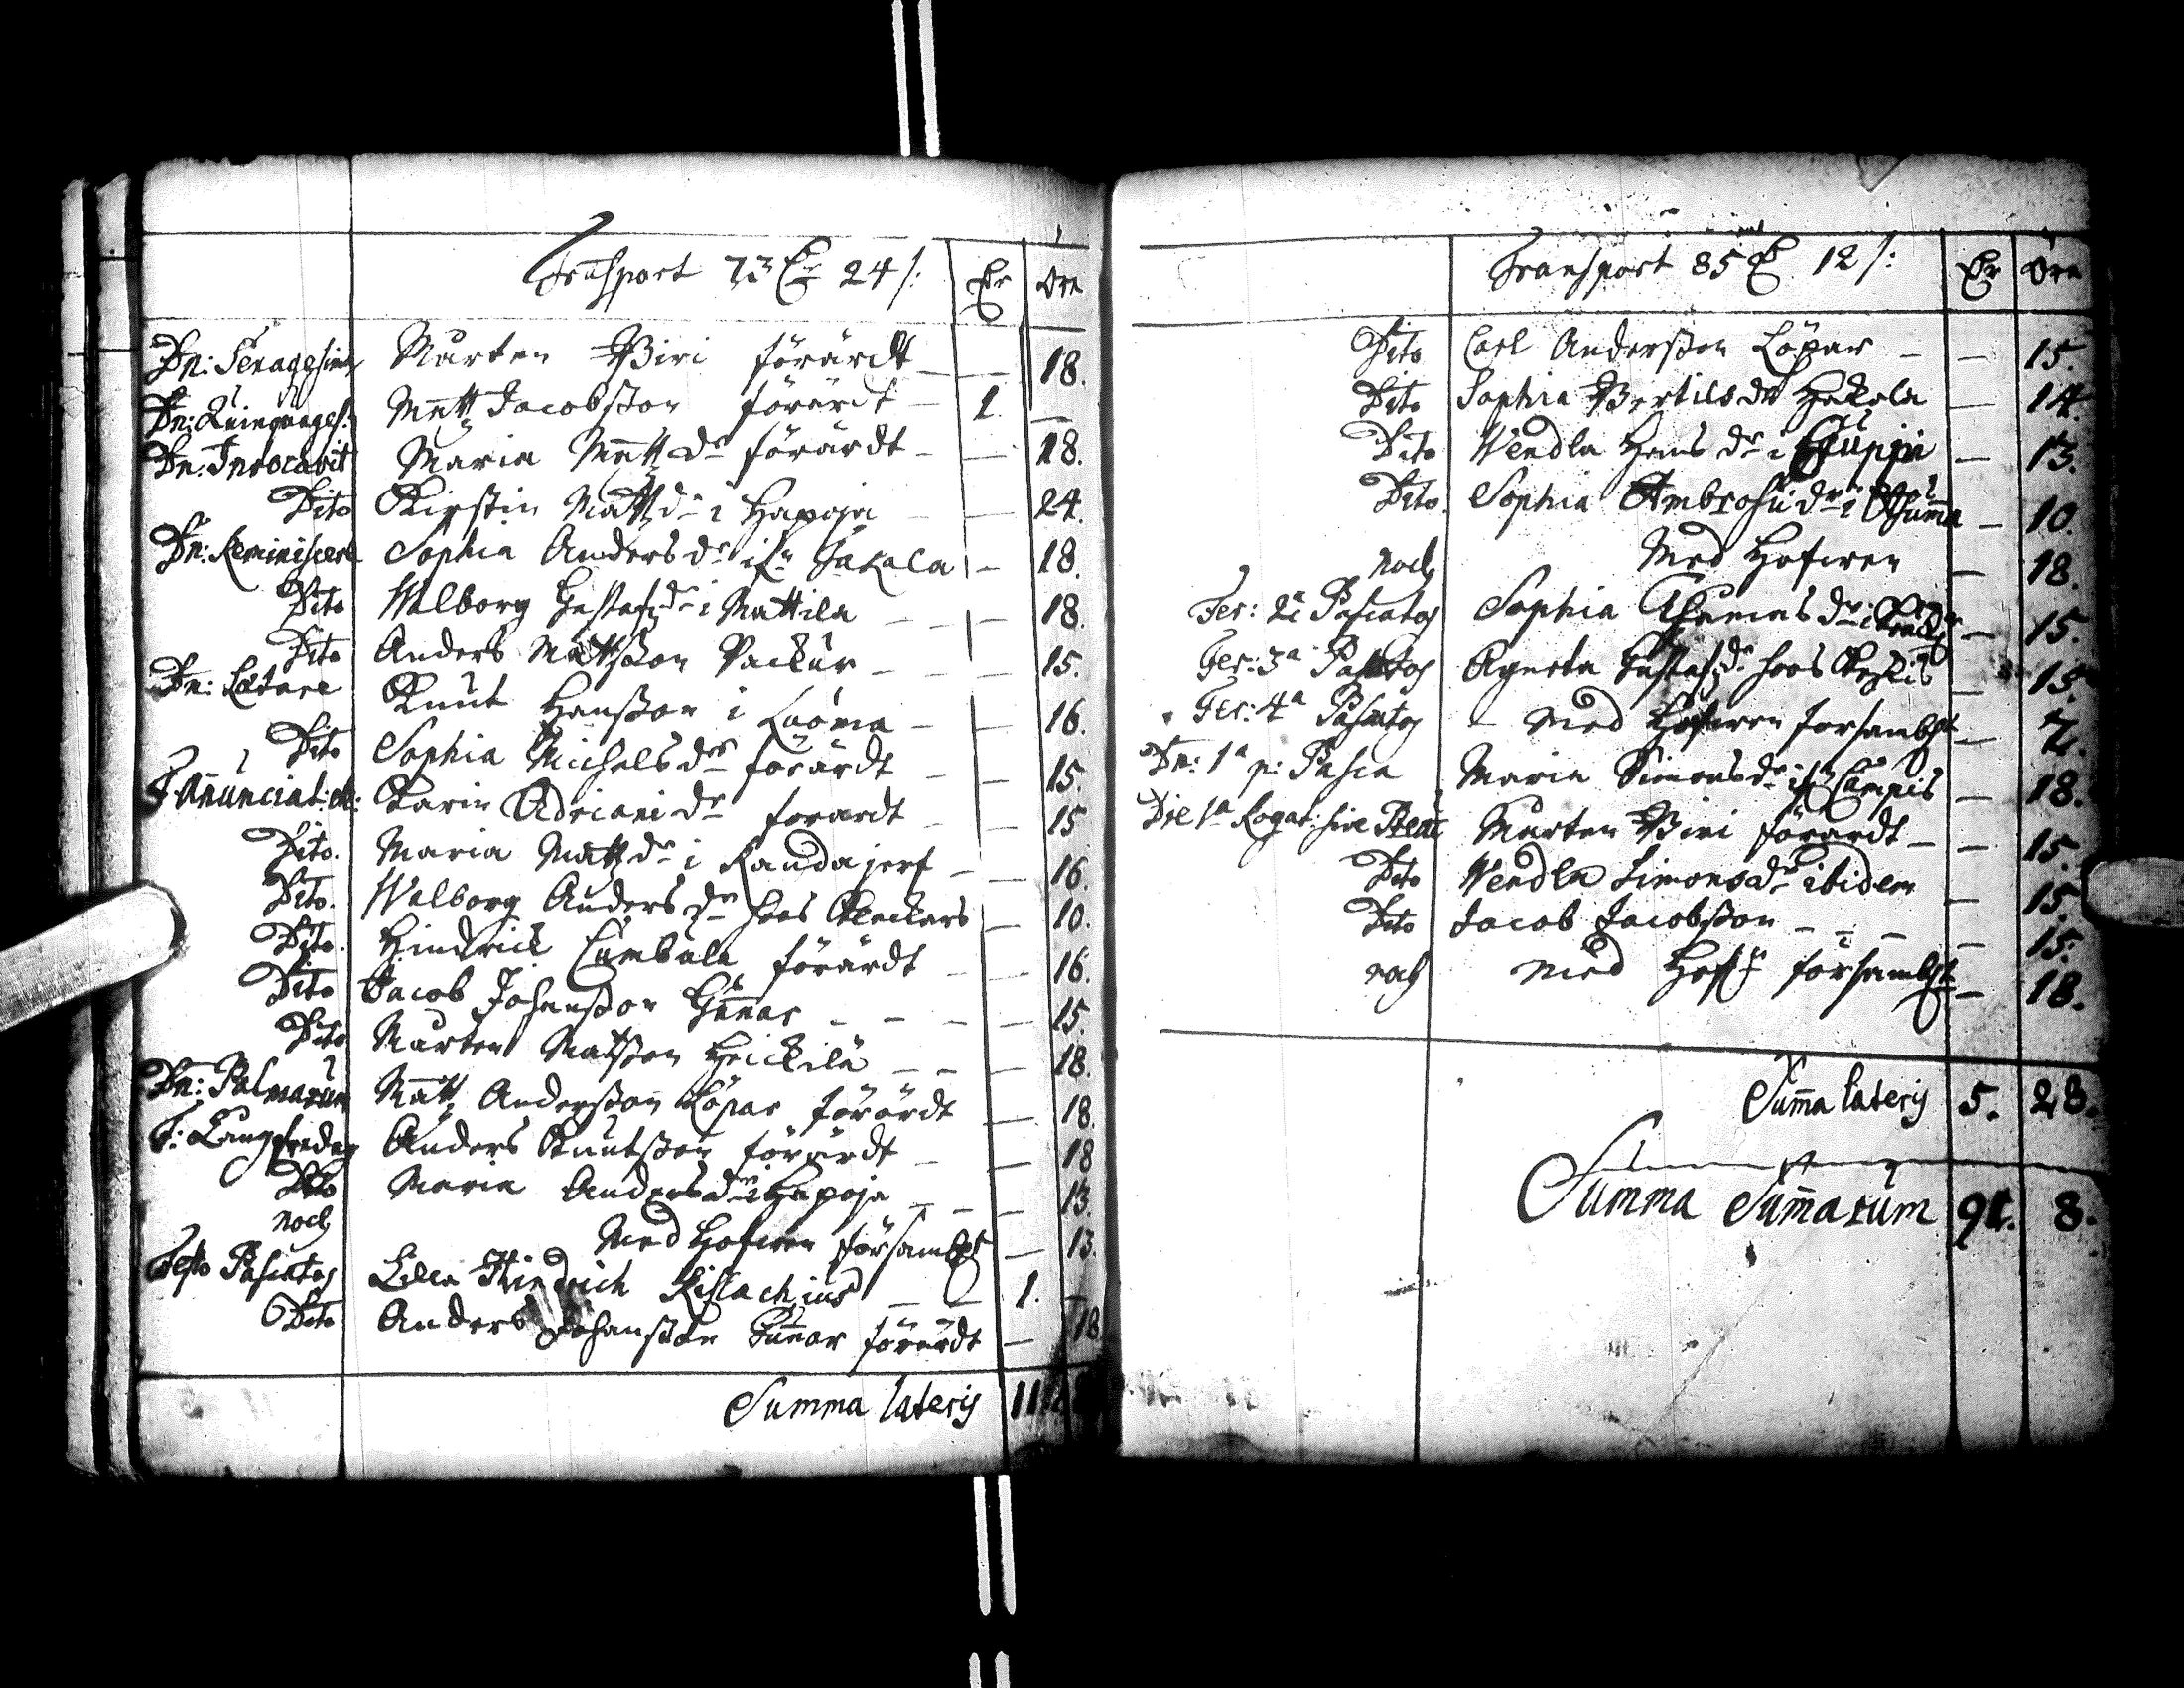 Transport 73 24 /: Dr Öre
Dn: Sexagesima Mårten Biri förärdt — — 18.
Dn: Quinquages: Matz Jacobsson förärdt — 1. —
Dn: Invocavit Maria Matz dr förärdt — — 18.
Dito Kirstin Matz dr i Hapoja — — 24.
Dn: Reminiscere Sophia Anders dr ifr. Jakala — 18.
Dito Walborg Gustafz dr i Mattila — — — 18.
Dito Anders Mattsson Packur — — — 15.
Dn: Lætare Knut Hansson i Luoma — — 16.
Dito Sophia Michels dr förärdt — — 15.
F. Annunciat: M: Karin Adriani dr förardt — — 15
Dito. Maria Matz dr i Kandajerf — — 16.
Dito. Walborg Anders dr hoos Kleckars — 10.
Dito. Hindrick Cambala förärdt — — 16.
Dito Jacob Johansson Gunnar — — — — 15.
Dito Mårten Matsson Heickilä — — — 18.
Dn: Palmarum Matz Andersson Löpar förärdt — 18.
F: Långfredag Anders Knutsson förärdt — — 18
Dito Maria Anders dr i Hapoja — — — 13.
noch Med Hofwen försambl. — 13.
Festo Paschatos Lilla Hindrich Kislachius — — 1. —
Dito Anders Johansson Gunnar förärdt — 18
Summa lateris 11.
Transport 85 12 /: Dr Öre
Dito Carl Andersson Löpar — — 15.
Dito Sophia Bertils dr Hakola — 14.
Dito Wendla Hans dr i — 13.
Dito. Sophia Ambrosii dr i — 10.
noch Med Hofwen — 18.
Fer: 2a Paschatos Sophia Thomas dr i — 15.
Fer: 3a Paschatos Agneta Gustafz dr hoos — 15.
Fer: 4a Paschatos — Med Hofwen försambl. — 7.
Dn: 1a p: Pascha Maria Simons dr ifr. Lampis — 18.
Die 1a Rogat: sive Mårten Biri förärdt — — 15.
Dito Wendla Simons dr ibidem — 15.
Dito Jacob Jacobsson — — — — 15.
noch Med Hofw försambl. — 18.
Summa lateris 5. 28.
Summa Summarum 91. 8.